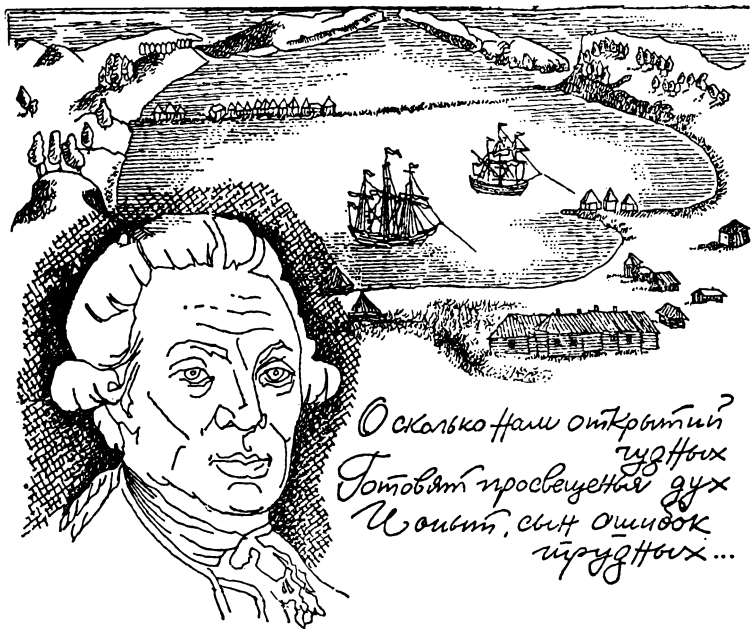 О сколько нам открытий
чудных
Готовят просвещенья дух
И опыт, сын ошибок
трудных...